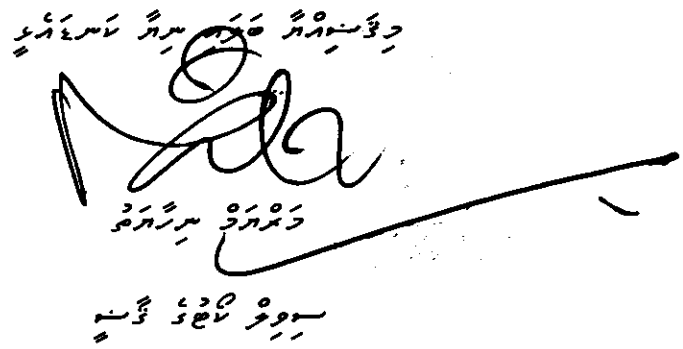 މިޤަޟިއްޔާ ބަލައި ނިޔާ ކަނޑައެޅީ
މަރްޔަމް ނިހާޔަތު
ސިވިލް ކޯޓުގެ ޤާޟީ